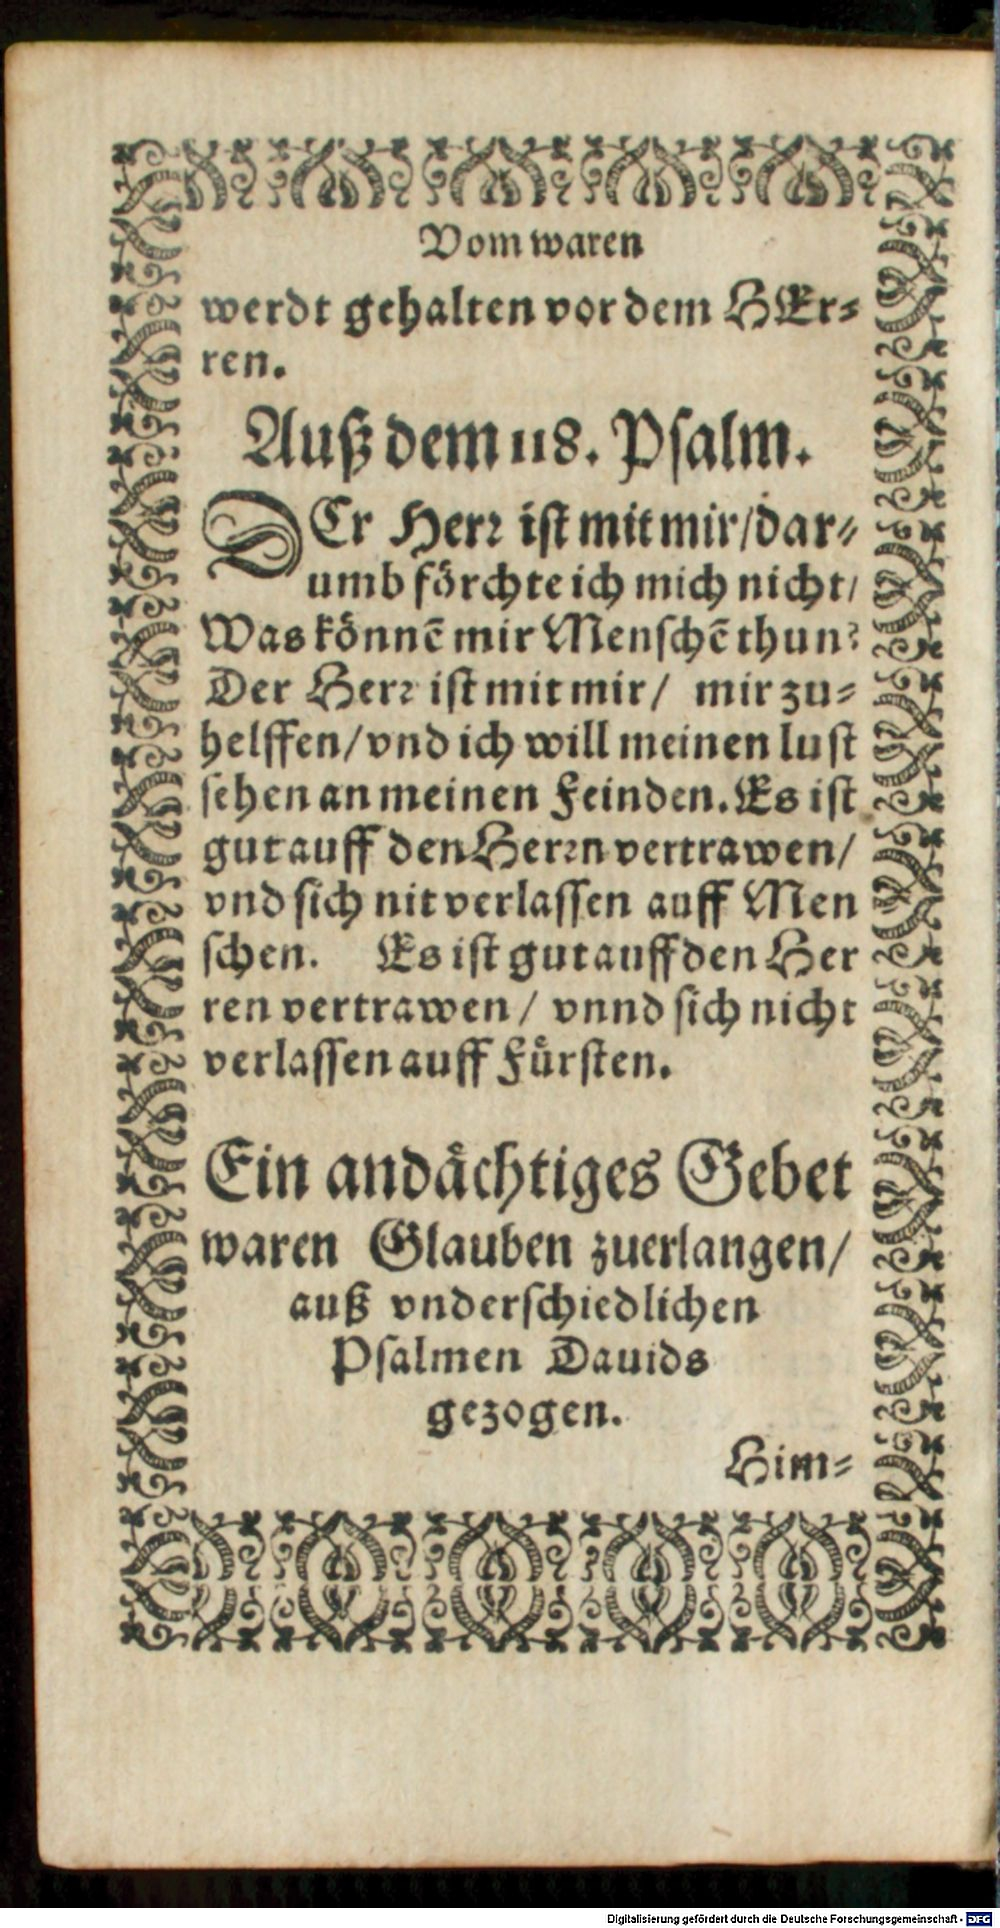 Vom waren
werdt gehalten vor dem HEr⸗
ren.
Auß dem 118. Psalm.
DEr Herr ist mit mir/dar⸗
umb förchte ich mich nicht/
Was könnē mir Menschē thun?
Der Herr ist mit mir/ mir zu⸗
helffen/vnd ich will meinen lust
sehen an meinen Feinden. Es ist
gut auff den Herrn vertrawen/
vnd sich nit verlassen auff Men
schen. Es ist gut auff den Her
ren vertrawen/ vnnd sich nicht
verlassen auff Fürsten.
Ein andächtiges Gebet
waren Glauben zuerlangen/
auß vnderschiedlichen
Psalmen Dauids
gezogen.
Him⸗
Digitalisierung gefördert durch die Deutsche Forschungsgemeinschaft - DFG